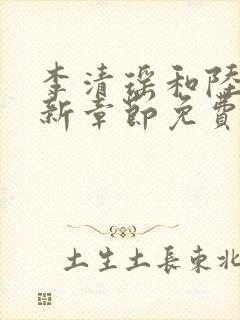 李清瑶和陆
新章节免費
土生土長東北